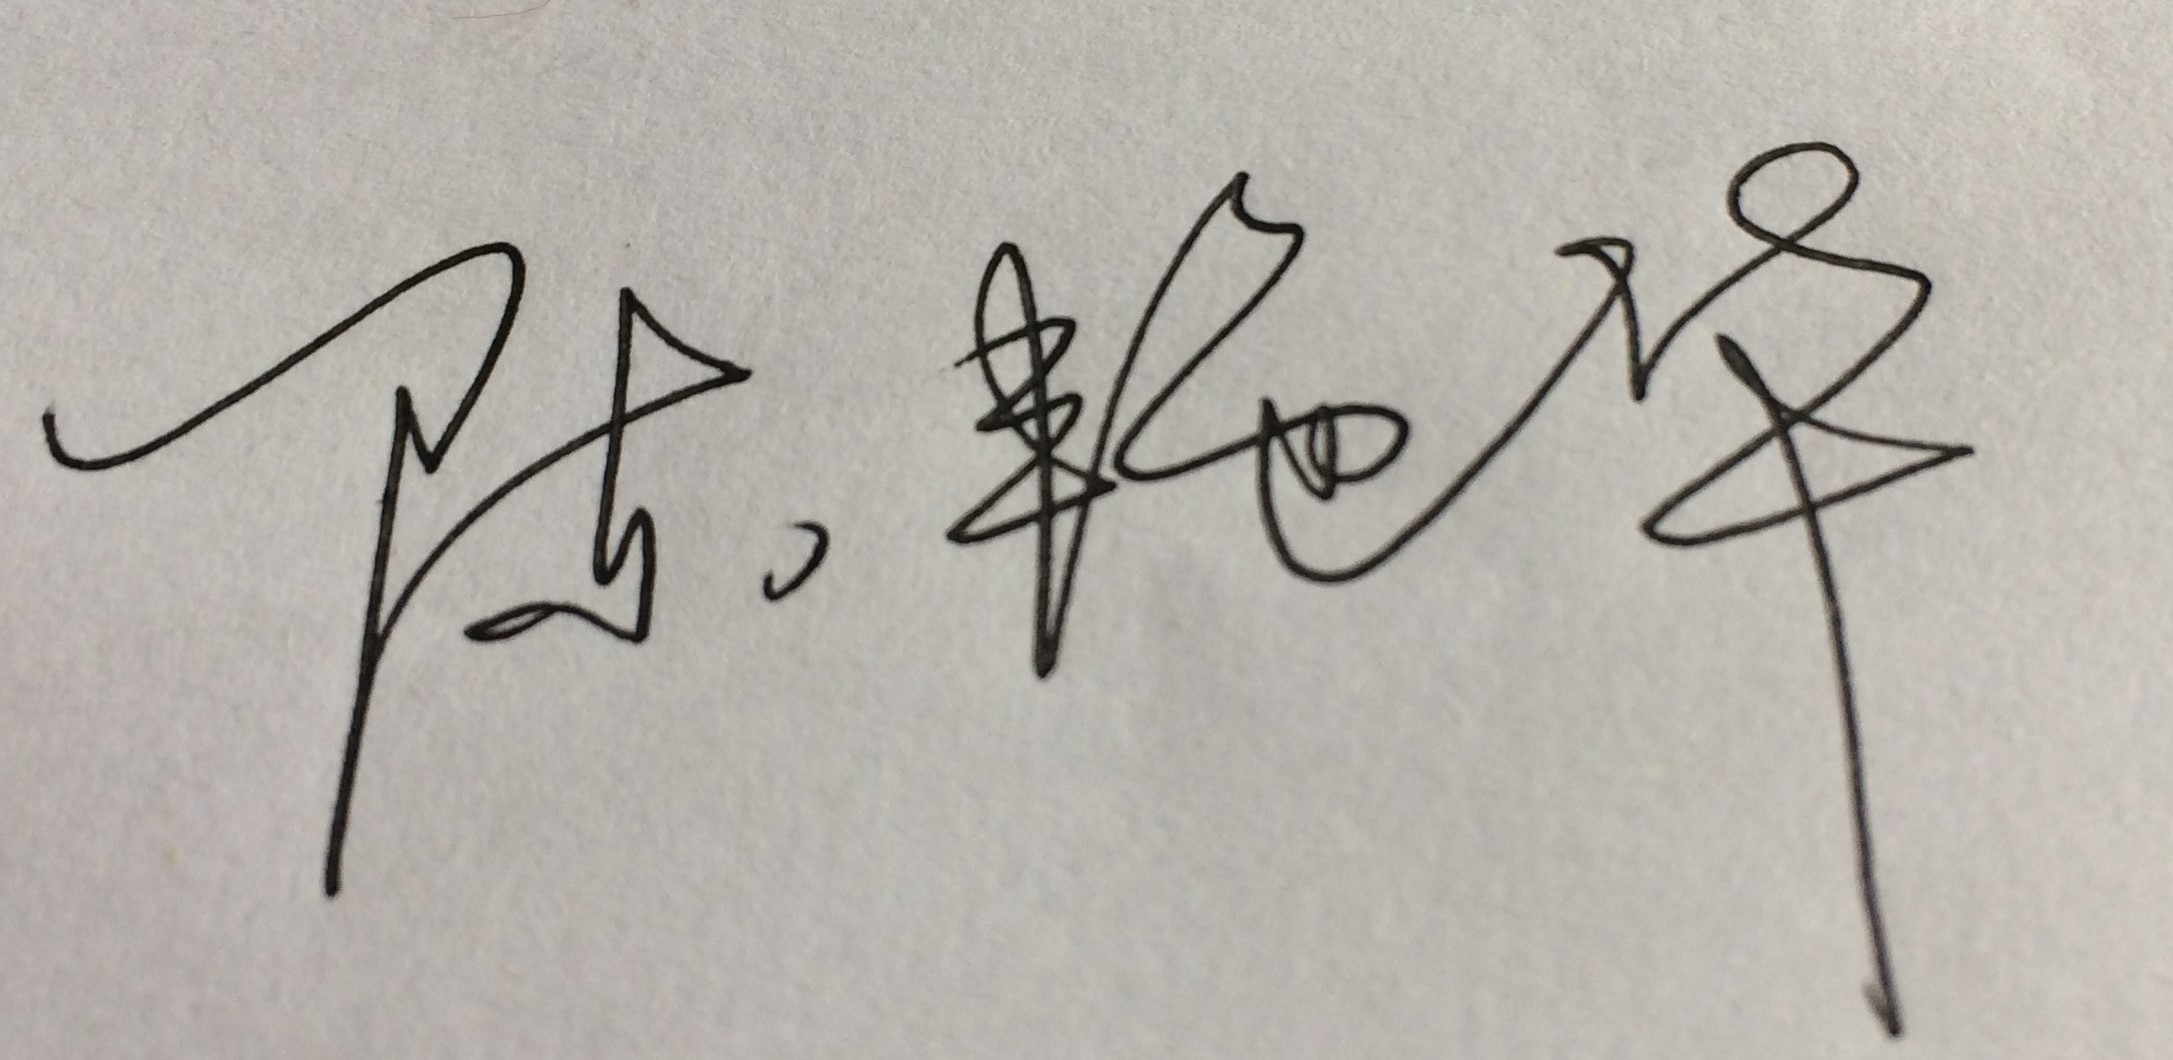 陈艳萍